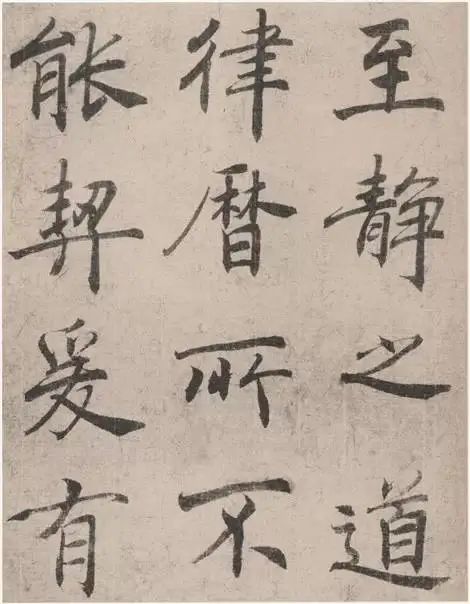 至静之道
律暦所不
能契爰有